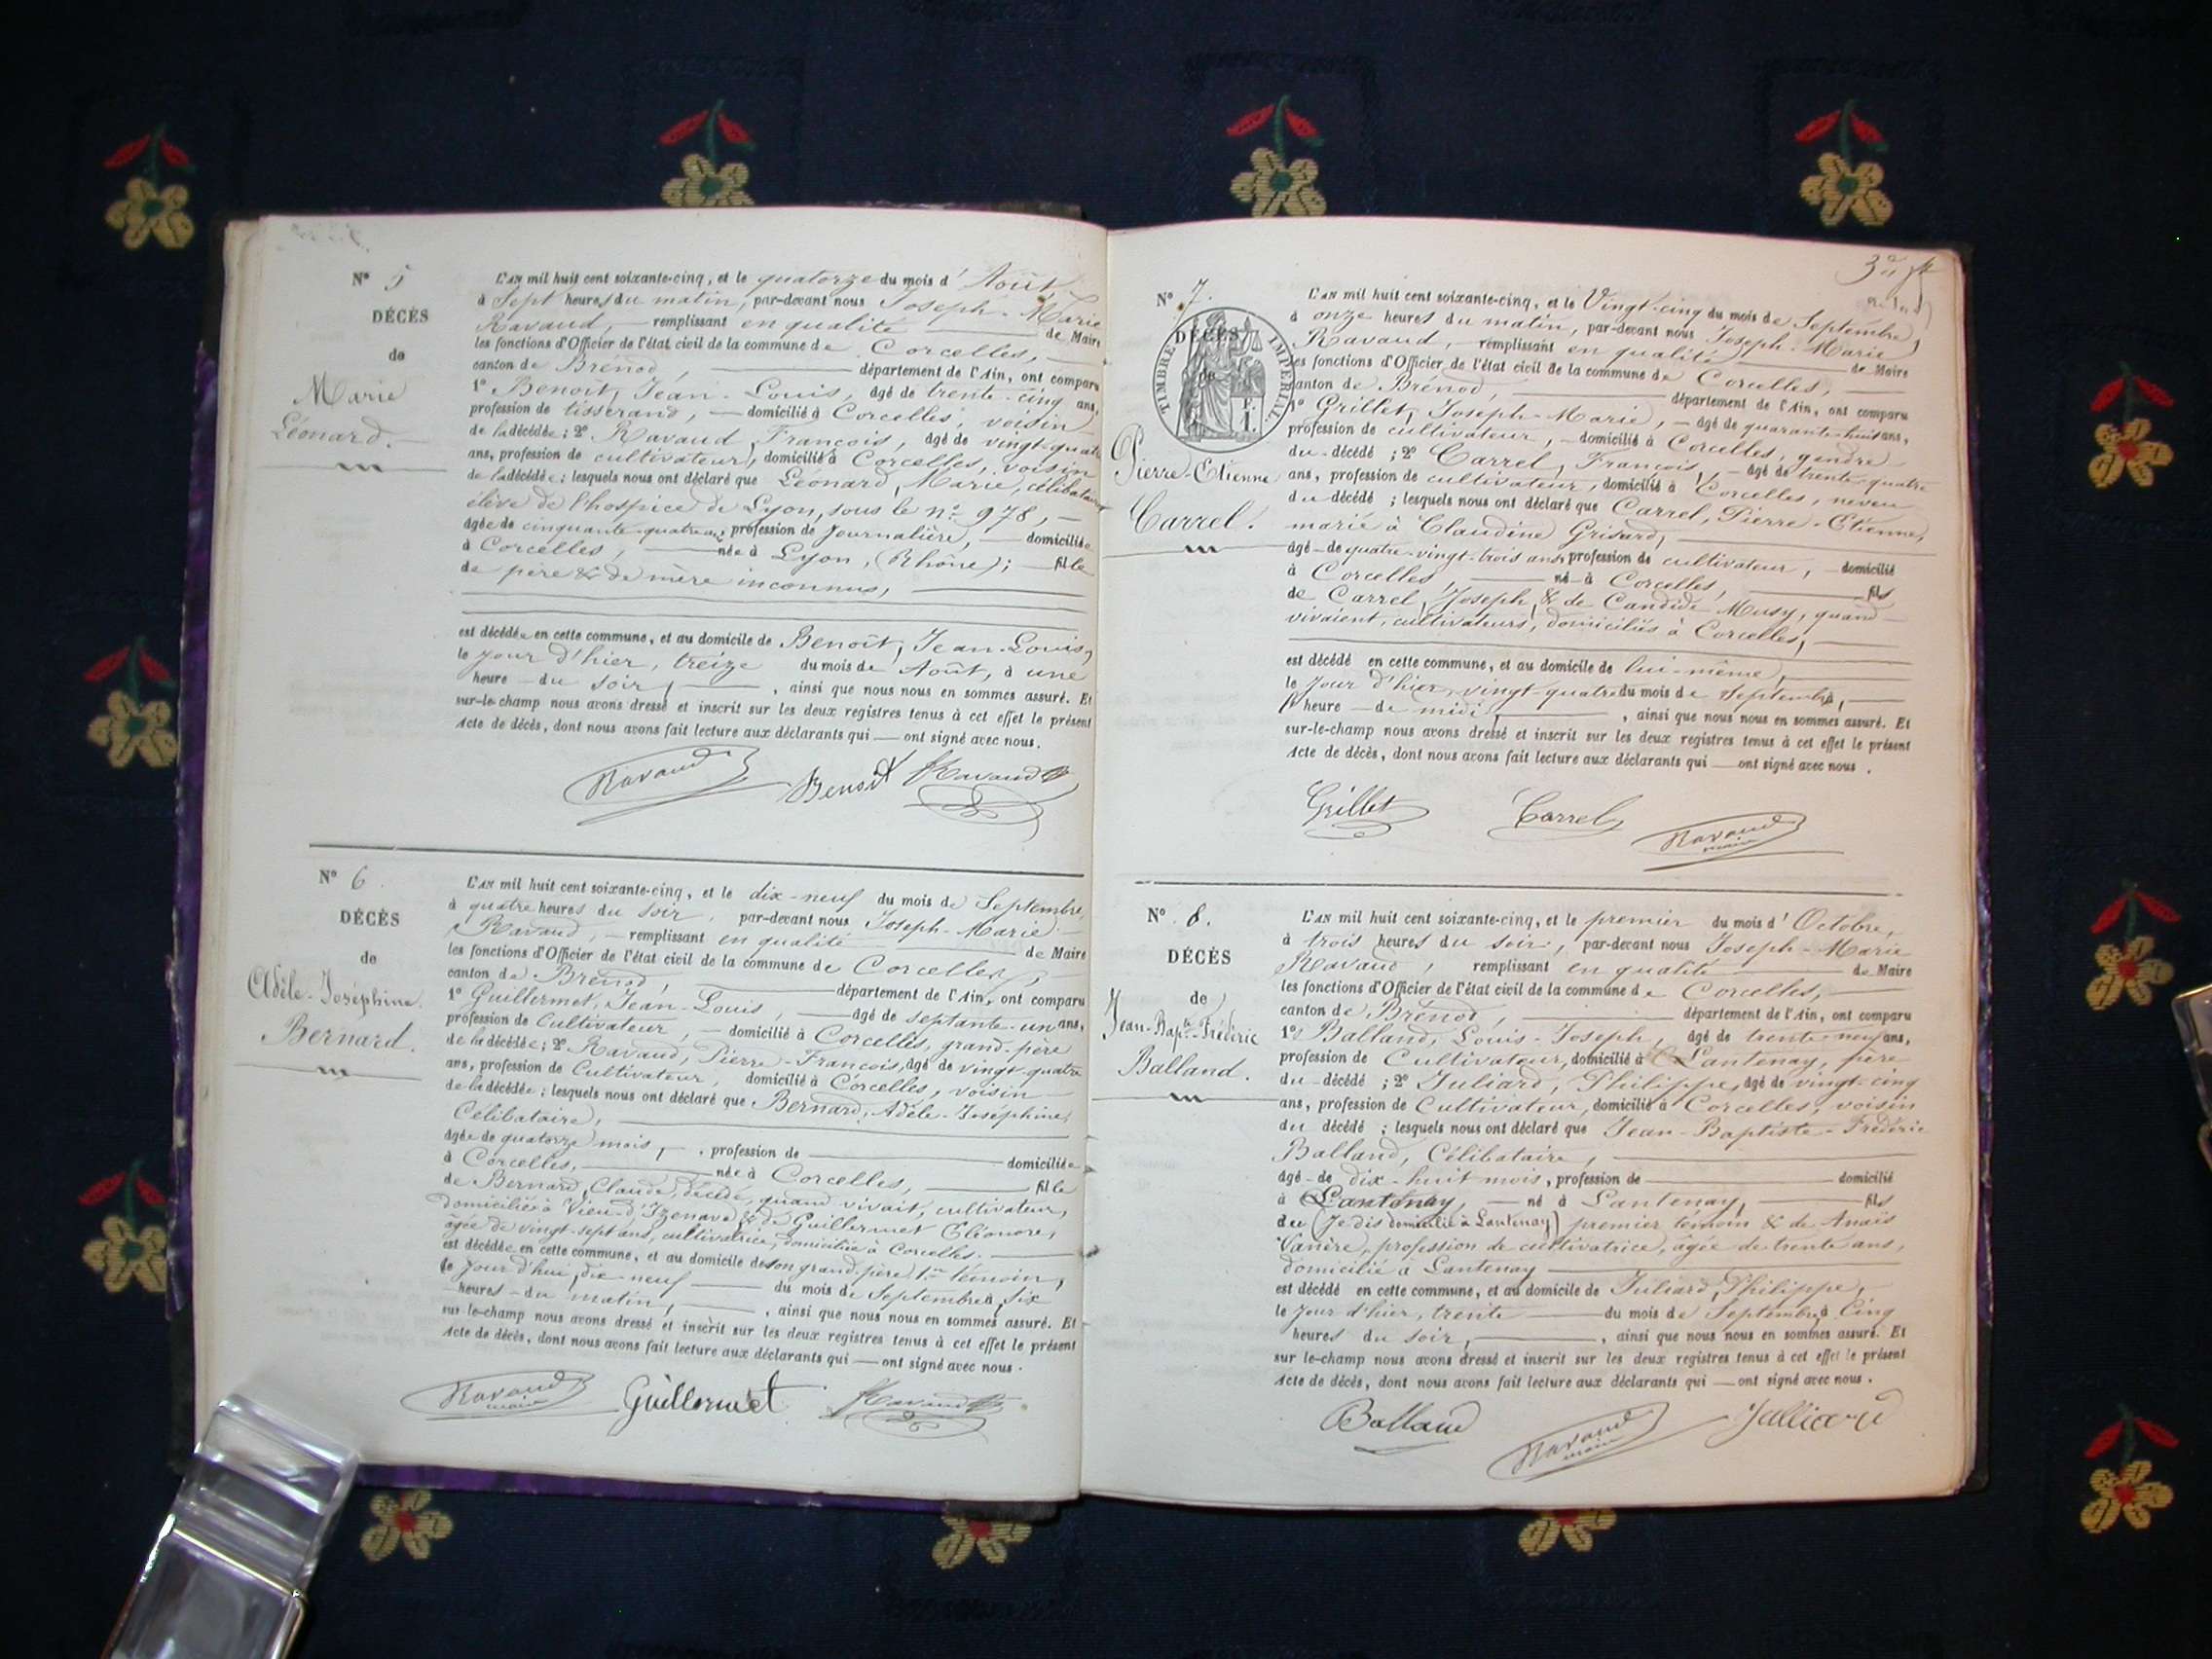 N° 5
DÉCÈS
de
Marie
Léonard.
L'AN mil huit cent soixante-cinq, et le quatorze du mois d' Août,
à Sept heures du matin, par-devant nous Joseph-Marie
Ravaud, remplissant en qualité de Maire
les fonctions d'Officier de l'état civil de la commune de Corcelles,
canton de Brénod, département de l'Ain, ont comparu
1° Benoît, Jean-Louis, âgé de trente-cinq ans,
profession de tisserand, domicilié à Corcelles, voisin
de la décédée; 2° Ravaud, François, âgé de vingt-quatre
ans, profession de cultivateur, domicilié à Corcelles, voisin
de la décédée; lesquels nous ont déclaré que Léonard, Marie, célibataire
élève de l'hospice de Lyon, sous le n° 978,
âgée de cinquante-quatre ans, profession de Journalière, domiciliée
à Corcelles, née à Lyon, (Rhône); fille
de père & de mère inconnus,
est décédée en cette commune, et au domicile de Benoît, Jean-Louis,
le jour d'hier, treize du mois de Août, à une
heure du soir, ainsi que nous nous en sommes assuré. Et
sur-le-champ nous avons dressé et inscrit sur les deux registres tenus à cet effet le présent
Acte de décès, dont nous avons fait lecture aux déclarants qui ont signé avec nous.
Ravaud Benoit Ravaud
N° 6.
DÉCÈS
de
Adèle-Joséphine
Bernard.
L'AN mil huit cent soixante-cinq, et le dix-neuf du mois de Septembre,
à quatre heures du soir, par-devant nous Joseph-Marie
Ravaud, remplissant en qualité de Maire
les fonctions d'Officier de l'état civil de la commune de Corcelles,
canton de Brénod, département de l'Ain, ont comparu
1° Guillermet, Jean-Louis, âgé de septante-un ans,
profession de Cultivateur, domicilié à Corcelles, grand-père
de la décédée; 2° Ravaud, Pierre-François, âgé de vingt-quatre
ans, profession de Cultivateur, domicilié à Corcelles, voisin
de la décédée; lesquels nous ont déclaré que Bernard, Adèle-Joséphine,
Célibataire,
âgée de quatorze mois, profession de domiciliée
à Corcelles, née à Corcelles, fille
de Bernard, Claude, décédé, quand vivait, cultivateur,
domicilié à Vieu-d'Izenave, & de Guillermet Eléonore,
âgée de vingt-sept ans, cultivatrice, domiciliée à Corcelles.
est décédée en cette commune, et au domicile de son grand-père, 1er témoin,
le jour d'hui, dix-neuf du mois de Septembre à six
heures du matin, ainsi que nous nous en sommes assuré. Et
sur-le-champ nous avons dressé et inscrit sur les deux registres tenus à cet effet le présent
Acte de décès, dont nous avons fait lecture aux déclarants qui ont signé avec nous.
Ravaud maire Guillermet Ravaud
N° 7.
TIMBRE IMPÉRIAL
DÉCÈS
de
Pierre-Etienne
Carrel.
L'AN mil huit cent soixante-cinq, et le Vingt-cinq du mois de Septembre,
à onze heures du matin, par-devant nous Joseph-Marie
Ravaud, remplissant en qualité de Maire
les fonctions d'Officier de l'état civil de la commune de Corcelles,
canton de Brénod, département de l'Ain, ont comparu
1° Grillet, Joseph-Marie, âgé de quarante-huit ans,
profession de cultivateur, domicilié à Corcelles, gendre
du décédé; 2° Carrel, François, âgé de trente-quatre
ans, profession de cultivateur, domicilié à Corcelles, neveu
du décédé; lesquels nous ont déclaré que Carrel, Pierre-Etienne,
marié à Claudine Grisard,
âgé de quatre-vingt-trois ans, profession de cultivateur, domicilié
à Corcelles, né à Corcelles, fils
de Carrel, Joseph, & de Candide Musy, quand
vivaient, cultivateurs, domiciliés à Corcelles,
est décédé en cette commune, et au domicile de lui-même,
le jour d'hier, vingt-quatre du mois de Septembre,
heure de midi, ainsi que nous nous en sommes assuré. Et
sur-le-champ nous avons dressé et inscrit sur les deux registres tenus à cet effet le présent
Acte de décès, dont nous avons fait lecture aux déclarants qui ont signé avec nous.
Grillet Carrel Ravaud maire
N° 8.
DÉCÈS
de
Jean-Bapte-Frédéric
Balland.
L'AN mil huit cent soixante-cinq, et le premier du mois d' Octobre,
à trois heures du soir, par-devant nous Joseph-Marie
Ravaud, remplissant en qualité de Maire
les fonctions d'Officier de l'état civil de la commune de Corcelles,
canton de Brénod, département de l'Ain, ont comparu
1° Balland, Louis-Joseph, âgé de trente-neuf ans,
profession de Cultivateur, domicilié à Lantenay, père
du décédé; 2° Juliard, Philippe, âgé de vingt-cinq
ans, profession de Cultivateur, domicilié à Corcelles, voisin
du décédé; lesquels nous ont déclaré que Jean-Baptiste-Frédéric
Balland, Célibataire,
âgé de dix-huit mois, profession de domicilié
à Lantenay, né à Lantenay, fils
du (je dis domicilié à Lantenay) premier témoin & de Anaïs
Vanère, profession de cultivatrice, âgée de trente ans,
domicilié à Lantenay
est décédé en cette commune, et au domicile de Juliard, Philippe,
le jour d'hier, trente du mois de Septembre à Cinq
heures du soir, ainsi que nous nous en sommes assuré. Et
sur le-champ nous avons dressé et inscrit sur les deux registres tenus à cet effet le présent
Acte de décès, dont nous avons fait lecture aux déclarants qui ont signé avec nous.
Balland Ravaud maire Julliard